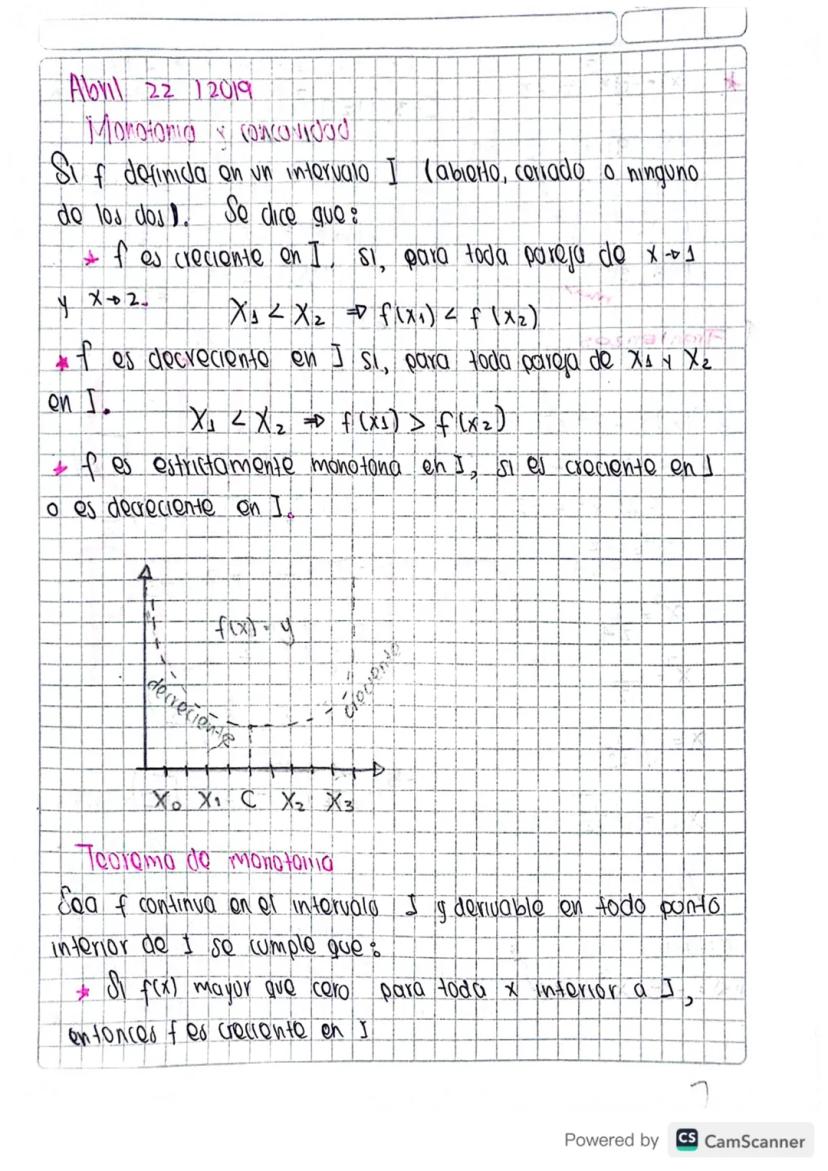 Abril 22 | 2019
Monotonia y concavidad
Si f definida en un intervalo I (abierto, cerrado o ninguno
de los dos). Se dice que:
* f es creciente en I, si, para toda pareja de x→1
y x→2.
X₁ < X₂ ⇒ f(x₁) < f(x₂)
* f es decreciente en I si, para toda pareja de X₁ y X₂
en I.
X₁ < X₂ ⇒ f(x₁) > f(x₂)
* f es estrictamente monotona en I, si es creciente en I
o es decreciente en I.
f(x) = y
decreciente
creciente
X₀ X₁ C X₂ X₃
Teorema de monotonia
Sea f continua en el intervalo I y derivable en todo punto
interior de I se cumple que:
* Si f(x) mayor que cero para toda x interior a I,
entonces f es creciente en I
Powered by CS CamScanner